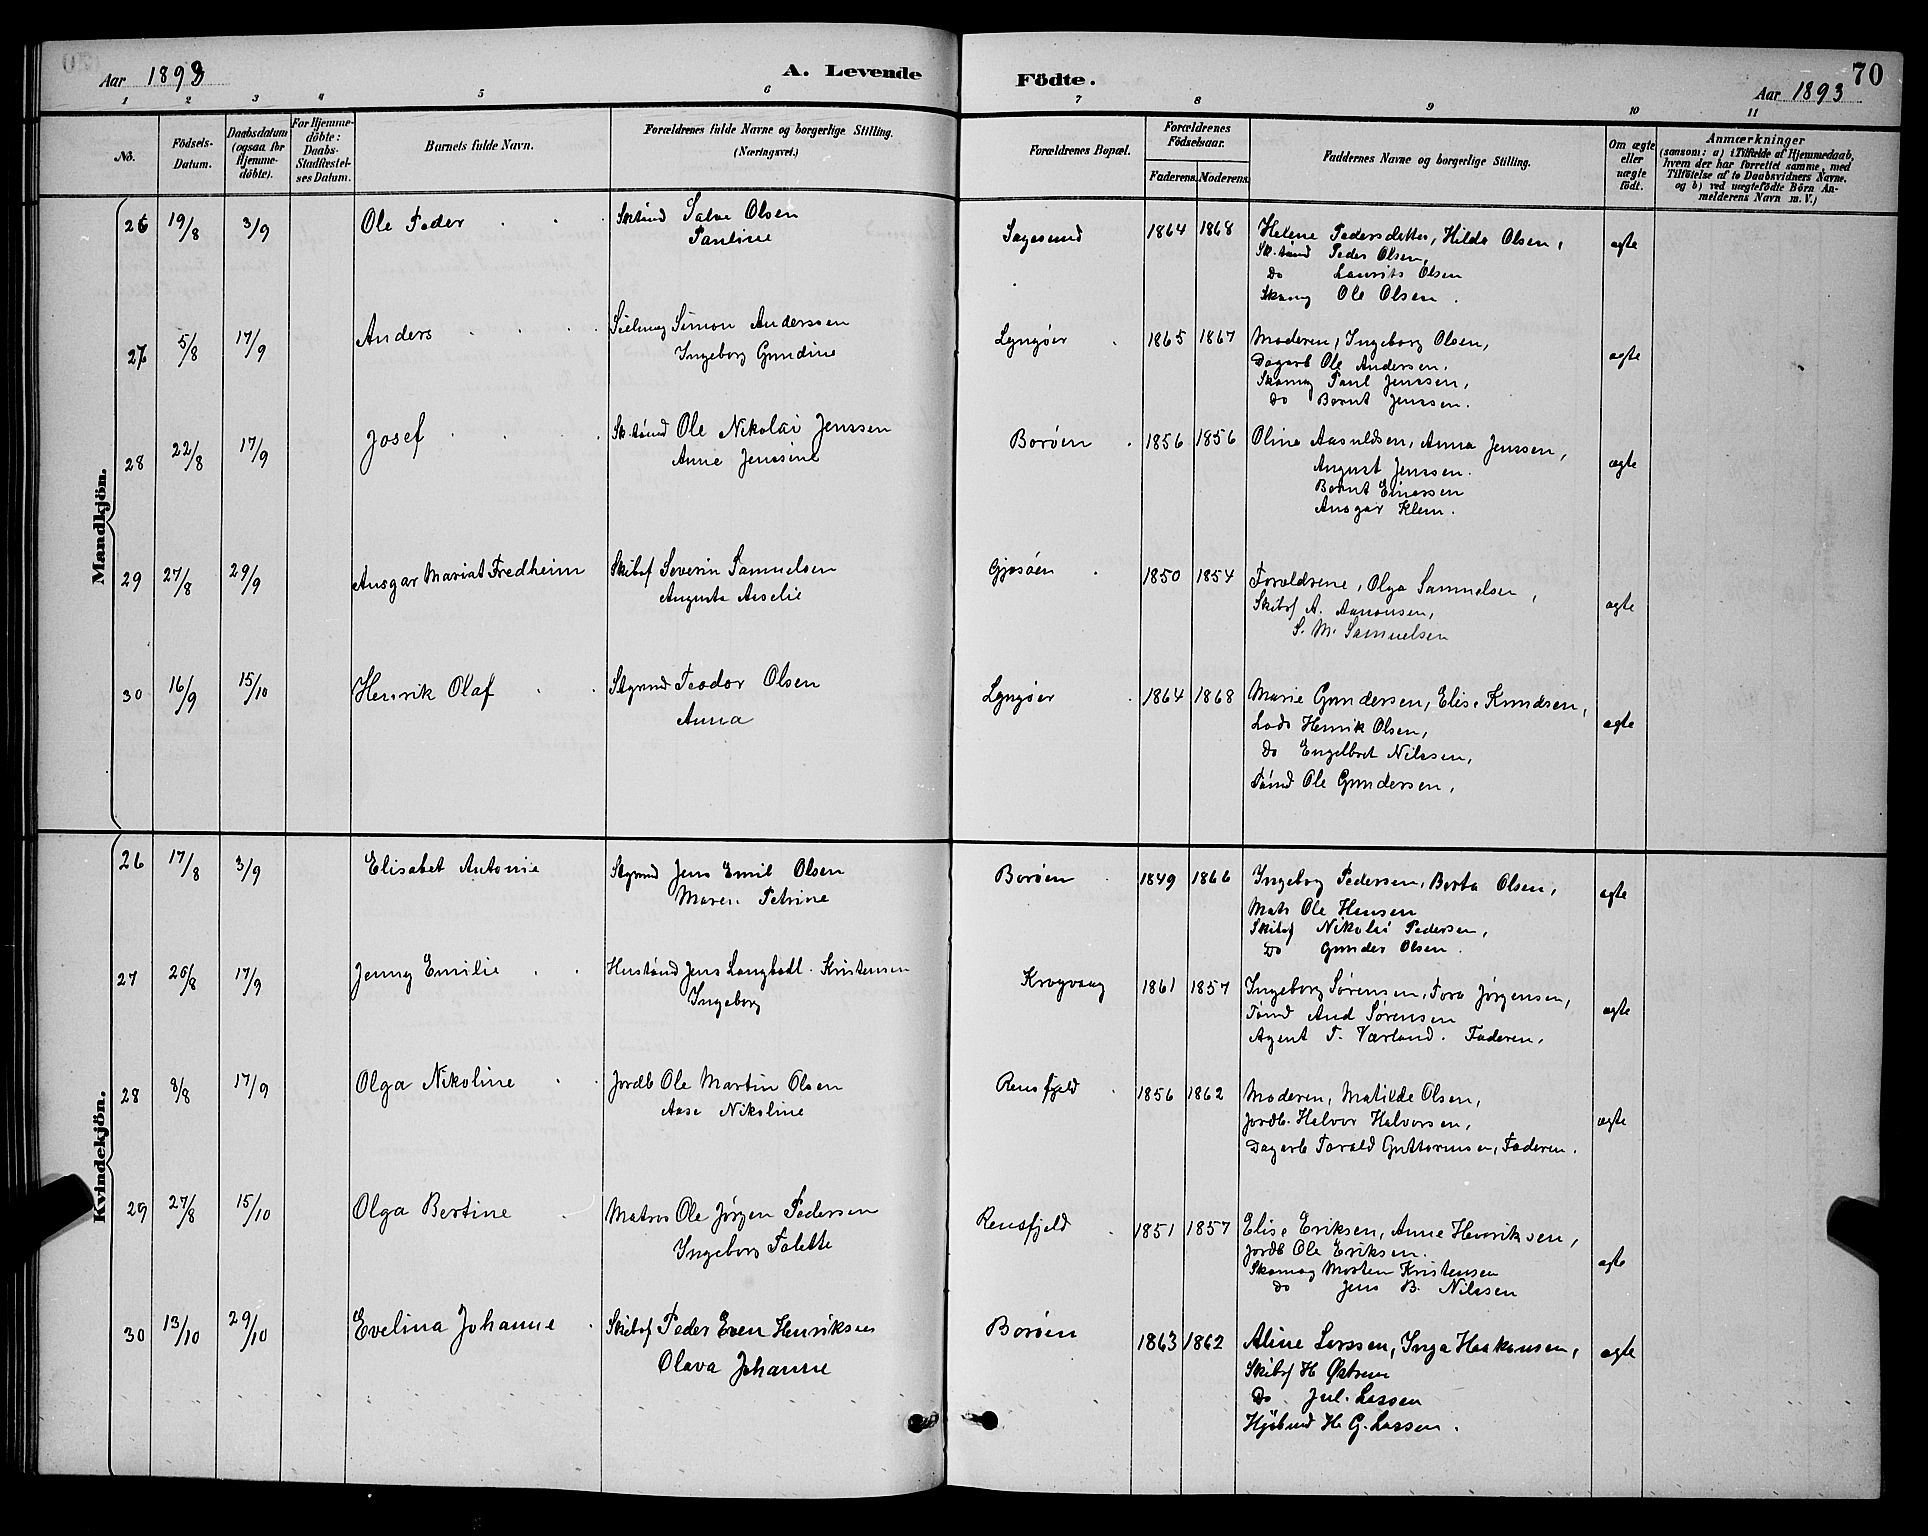 Aar 1893
A. Levende
Födte.
Aar 1893
70
1 2 3 4 5 6 7 8 9 10 11
No.
Födsels-Datum.
Daabsdatum (ogsaa for Hjemme-döbte).
For Hjemme-döbte: Daabs-Stadfæstel-ses Datum.
Barnets fulde Navn.
Forældrenes fulde Navne og borgerlige Stilling. (Næringsvei.)
Forældrenes Bopæl.
Forældrenes Födselsaar.
Faderens. Moderens.
Faddernes Navne og borgerlige Stilling.
Om ægte eller uægte födt.
Anmærkninger
(saasom: a) i Tilfælde af Hjemmedaab, hvem der har forrettet samme, med Tilföielse af to Daabsvidners Navne, og b) ved uægtefödte Börn An-melderens Navn m. V.)
Mandkjön.
26 19/8 3/9 Ole Peder Sktömd Salve Olsen
Pauline
Sagesund 1864 1868 Helene Pedersdatter, Hilda Olsen,
Sk.tömd Peder Olsen,
Do Laurits Olsen
Skomg Ole Olsen.
ægte
27 5/8 17/9 Anders Seilmag Simon Anderssen
Ingeborg Gundine
Lyngøer 1865 1867 Moderen, Ingeborg Olsen,
Dagarb Ole Andersen,
Skomag Paul Jenssen,
Do Bernt Jenssen.
ægte
28 22/8 17/9 Josef Sk.tömd Ole Nikolai Jenssen
Anne Jenssine
Borøen 1856 1856 Olina Aasuldsen, Anna Jenssen,
August Jenssen.
Bernt Einersen
Ansgar Klem.
ægte
29 27/8 29/9 Ansgar Mariat Fredheim Skibsf Severin Samuelsen
Augusta Aaselie
Gjæsöen 1850 1854 Forældrene, Olga Samuelsen,
Skibsf A. Aanonsen,
S. M. Samuelsen
ægte
30 16/9 15/10 Henrik Olaf Styrmd Teodor Olsen
Anna
Lyngøer 1864 1868 Marie Gundersen, Elise Knudsen,
Lods Henrik Olsen,
Do Engelbret Nilssen,
Tömd Ole Gundersen,
ægte
Kvindekjön.
26 17/8 3/9 Elisabet Antonie Styrmd Jens Emil Olsen
Maren Petrine
Borøen 1849 1866 Ingeborg Pedersen, Berta Olsen,
Matr Ole Hansen
Skibsf Nikolai Pedersen,
Do Gunder Olsen.
ægte
27 20/8 17/9 Jenny Emilie Hustömd Jens Langbadl. Kristensen
Ingeborg
Krogvaag 1861 1857 Ingeborg Sørensen, Tora Jørgensen,
Tömd And Sørensen
Agent T. Værland. Faderen,
ægte
28 8/8 17/9 Olga Nikoline Jordb Ole Martin Olsen
Aase Nikoline
Rensfjeld 1856 1862 Moderen, Matilde Olsen,
Jordb. Halvor Halvorsen,
Dagarb Torald Guttormsen, Faderen.
ægte
29 27/8 15/10 Olga Bertine Matros Ole Jørgen Pedersen
Ingeborg Talette
Rensfjeld 1851 1857 Elise Eriksen, Anne Henriksen,
Jordb Ole Eriksen.
Skomag Morten Kristensen
Do Jens B. Nilssen
ægte
30 13/10 29/10 Evelina Johanne Skibsf Peder Even Henriksen
Olava Johanne
Borøen 1863 1862 Aline Larssen, Inga Haakonsen,
Skibsf H Østrem
Do Jul. Lassen
Hjöbmd H. G. Lassen.
ægte